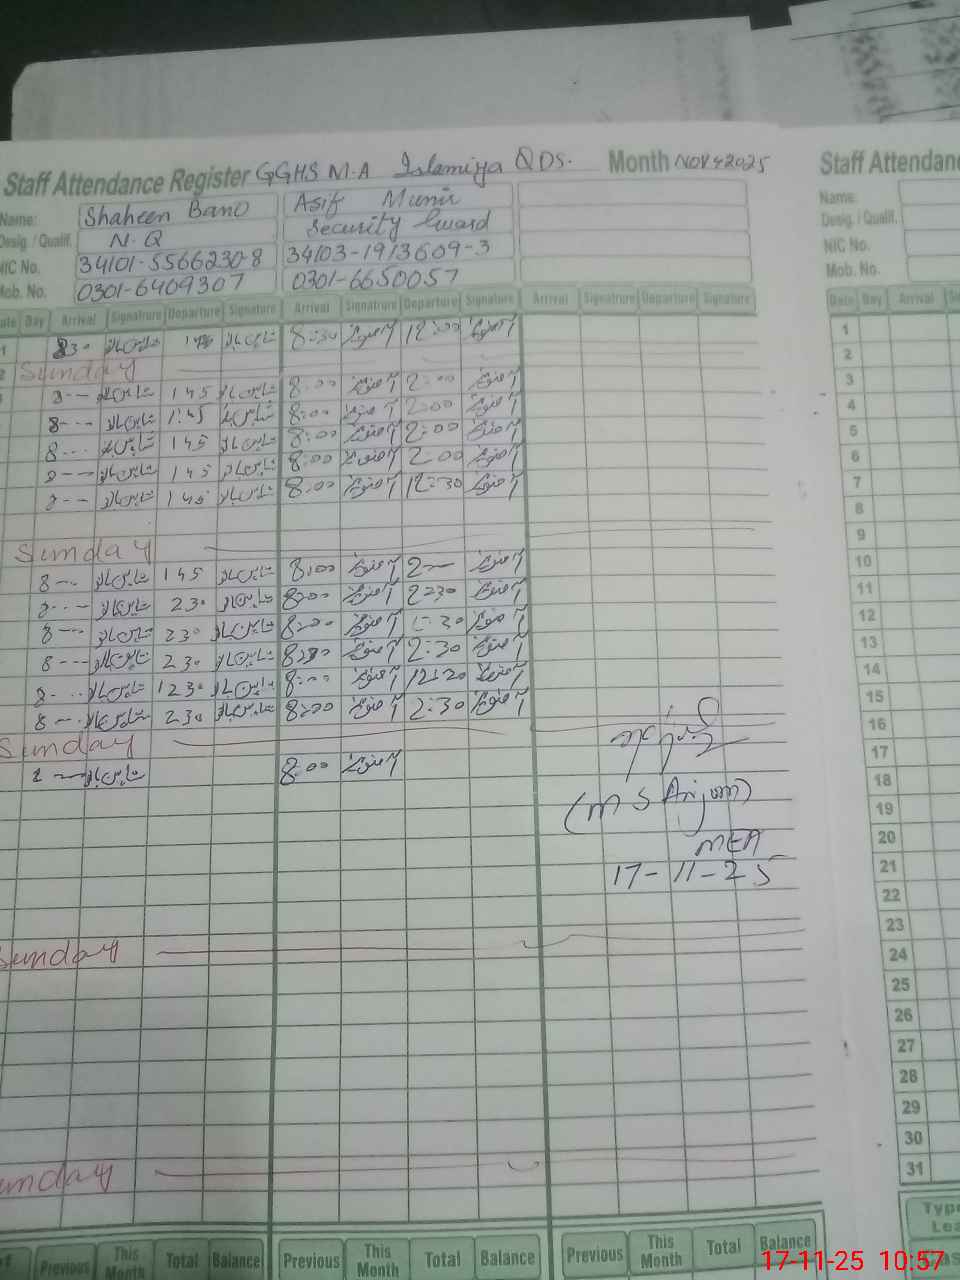 Staff Attendance Register GGHS M.A Islamiya QDS. Month NOV,2025
Staff Attendanc
Name: Shaheen Bano Asif Munir
Name:
Desig. / Qualif. N.Q Security Guard
Desig. / Qualif.
NIC No. 34101-5566230-8 34103-1913609-3
NIC No.
Mob. No. 0301-6409307 0301-6650057
Mob. No.
Date Day Arrival Signatrure Departure Signatrure Arrival Signatrure Departure Signatrure Arrival Signatrure Departure Signatrure
Date Day Arrival
1 830 شاہین بانو شاہین بانو 8:30 آصف منیر 12:00 آصف منیر
2 Sunday
8-- شاہین بانو 145 شاہین بانو 8:00 آصف منیر 2:00 آصف منیر
8-- شاہین بانو 1:45 شاہین بانو 8:00 آصف منیر 2:00 آصف منیر
8-- شاہین بانو 145 شاہین بانو 8:00 آصف منیر 2:00 آصف منیر
8-- شاہین بانو 145 شاہین بانو 8:00 آصف منیر 2:00 آصف منیر
8-- شاہین بانو 145 شاہین بانو 8:00 آصف منیر 12:30 آصف منیر
Sunday
8-- شاہین بانو 145 شاہین بانو 8:00 آصف منیر 2-- آصف منیر
8-- شاہین بانو 230 شاہین بانو 8:00 آصف منیر 2:30 آصف منیر
8-- شاہین بانو 230 شاہین بانو 8:00 آصف منیر :30 آصف منیر
8-- شاہین بانو 230 شاہین بانو 8:00 آصف منیر 2:30 آصف منیر
8-- شاہین بانو 1230 شاہین بانو 8:00 آصف منیر آصف منیر
8-- شاہین بانو 230 شاہین بانو 8:00 آصف منیر 2:30 آصف منیر
Sunday
8-- شاہین بانو 8:00 آصف منیر
(M S Anjum)
MEA
17-11-25
Sunday
Sunday
1
2
3
4
5
6
7
8
9
10
11
12
13
14
15
16
17
18
19
20
21
22
23
24
25
26
27
28
29
30
31
Previous This Month Total Balance Previous This Month Total Balance Previous This Month Total Balance
Type
Lea
17-11-25 10:57